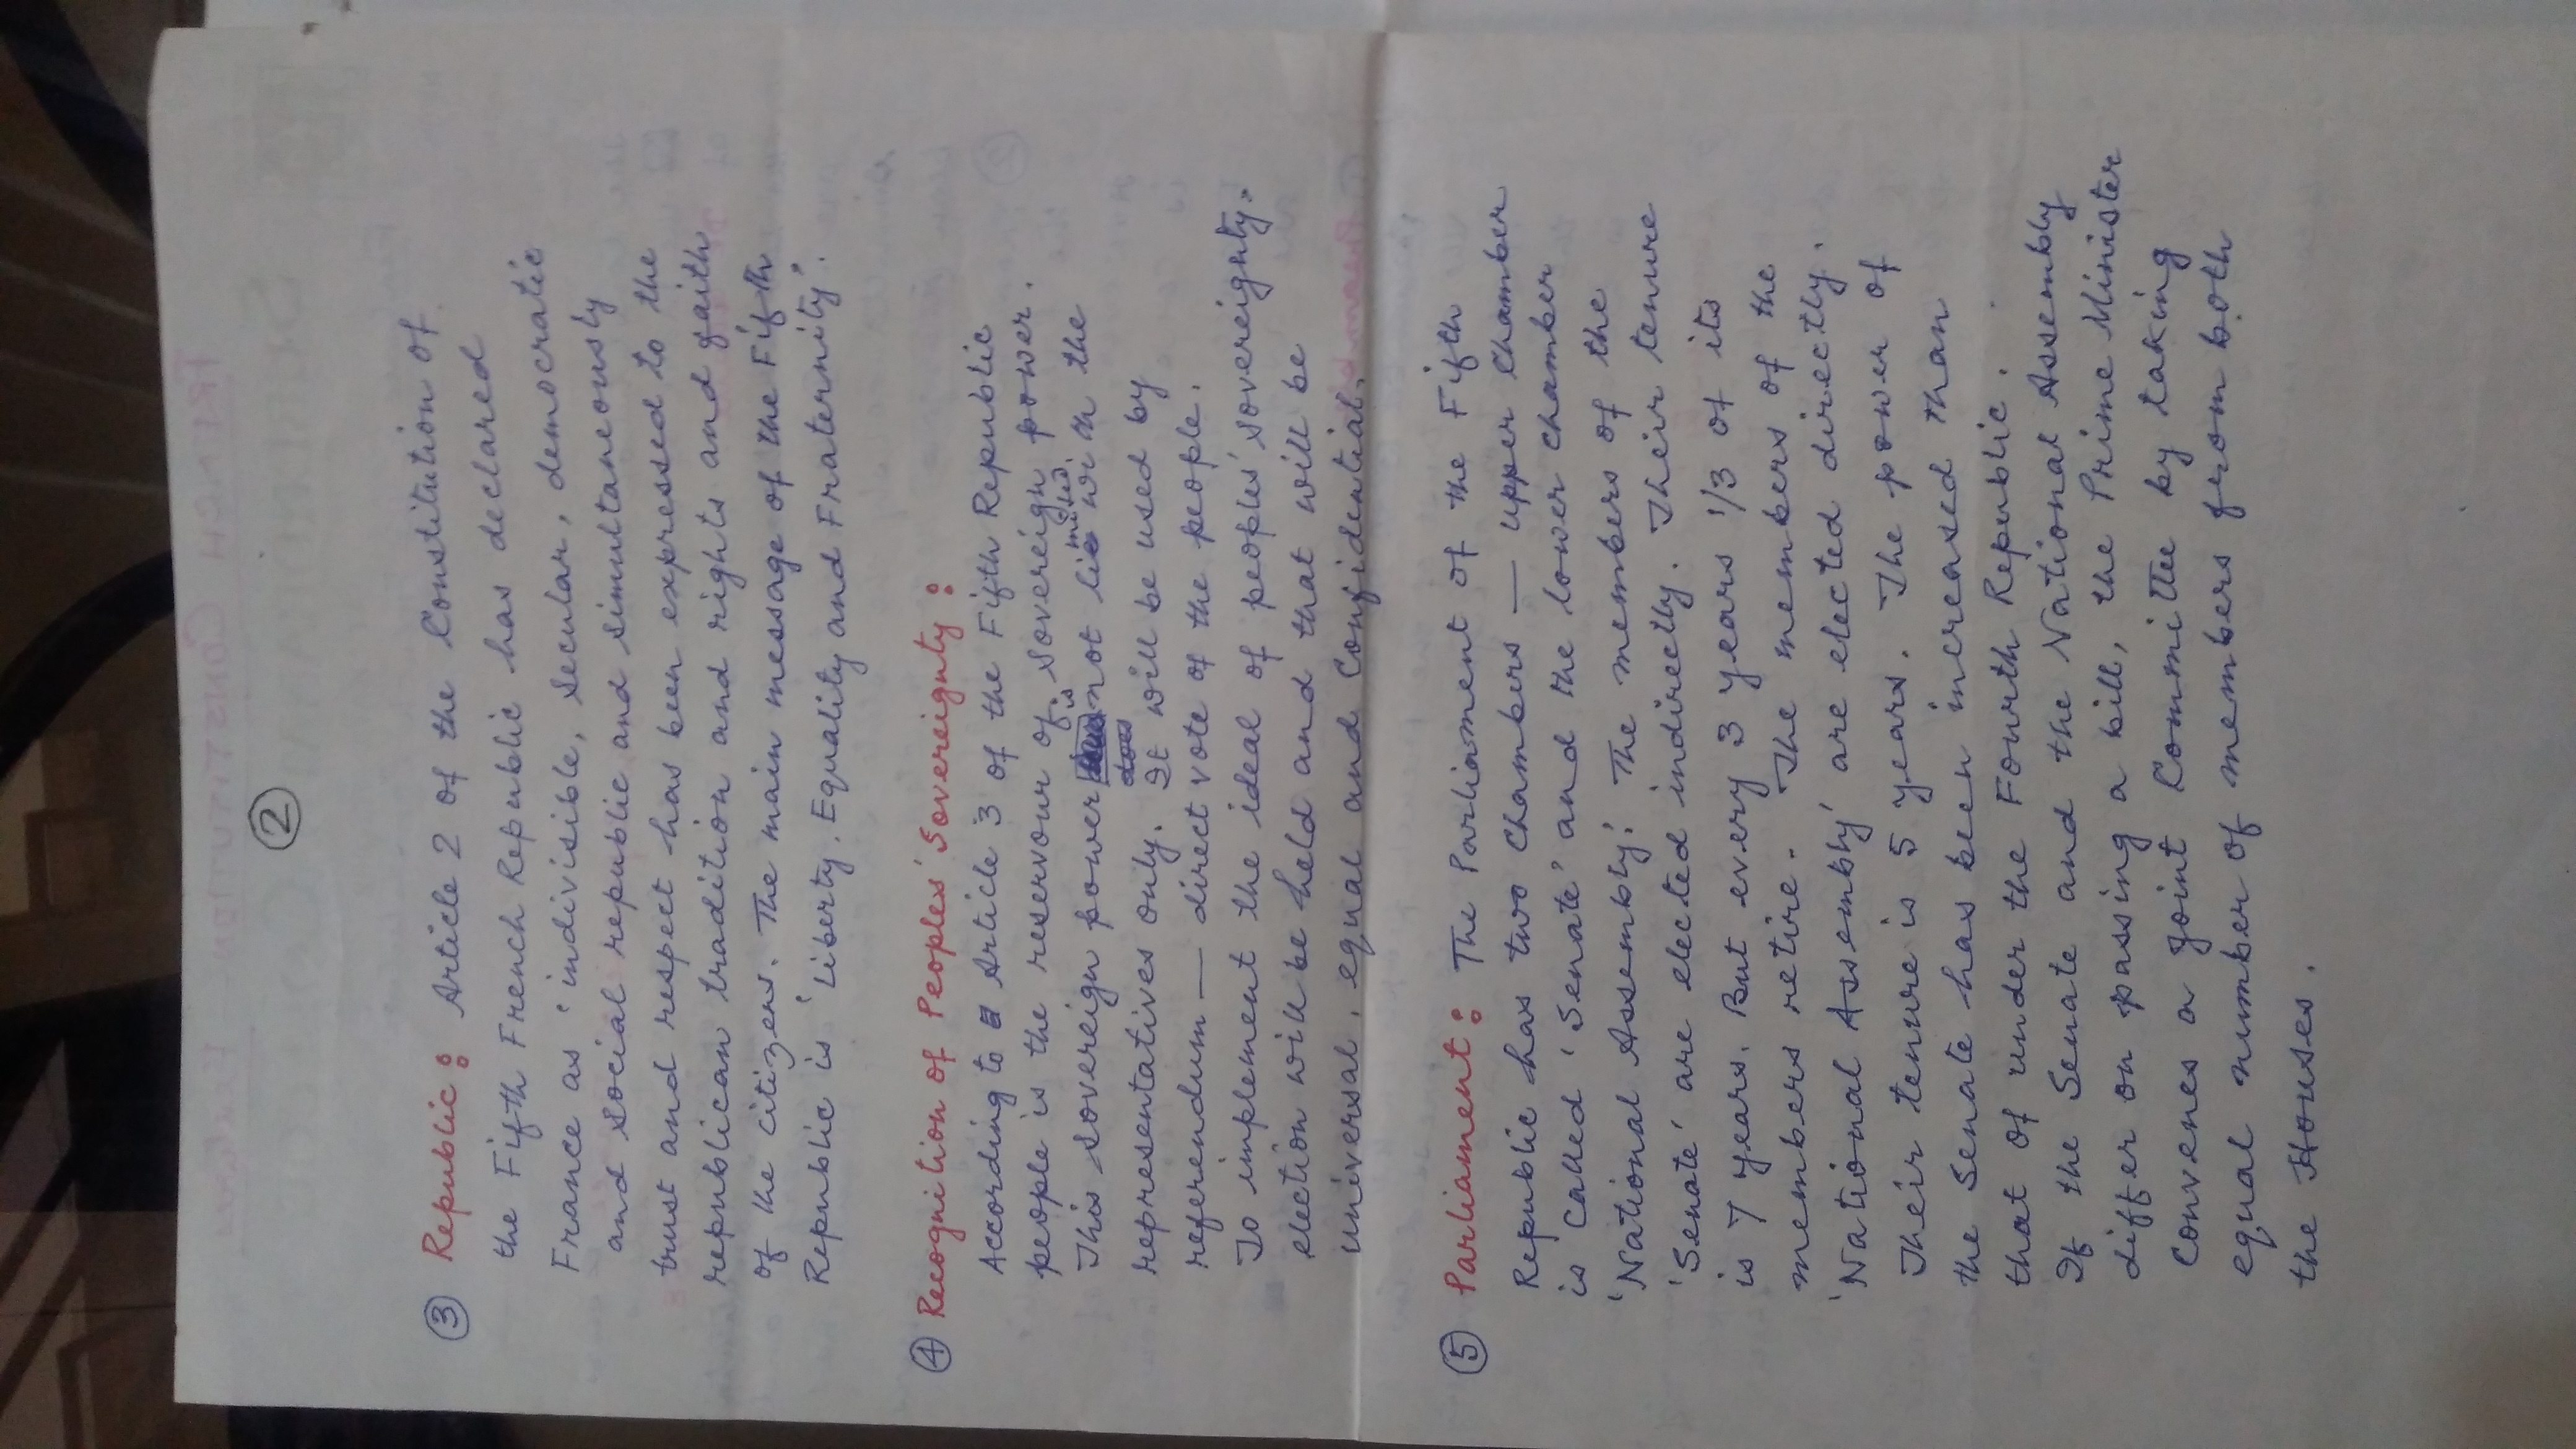 ②
③ Republic: Article 2 of the Constitution of
the Fifth French Republic has declared
France as 'indivisible, secular, democratic
and social republic and simultaneously
trust and respect has been expressed to the
republican tradition and rights and faith
of the citizens. The main message of the Fifth
Republic is 'Liberty, Equality and Fraternity'.
④ Recognition of Peoples' Sovereignty:
According to Article 3 of the Fifth Republic
people is the reservour of sovereign power.
This sovereign power is not misused in the
representatives only. It will be used by
referendum — direct vote of the people.
To implement the ideal of peoples' sovereignty.
election will be held and that will be
universal, equal and confidential.
⑤ Parliament: The Parliament of the Fifth
Republic has two chambers — upper chamber
is called 'Senate' and the lower chamber
'National Assembly'. The members of the
'Senate' are elected indirectly. Their tenure
is 7 years. But every 3 years 1/3 of its
members retire. The members of the
'National Assembly' are elected directly.
Their tenure is 5 years. The power of
the Senate has been increased than
that of under the Fourth Republic.
If the Senate and the National Assembly
differ on passing a bill, the Prime Minister
convenes a joint Committe by taking
equal number of members from both
the Houses.